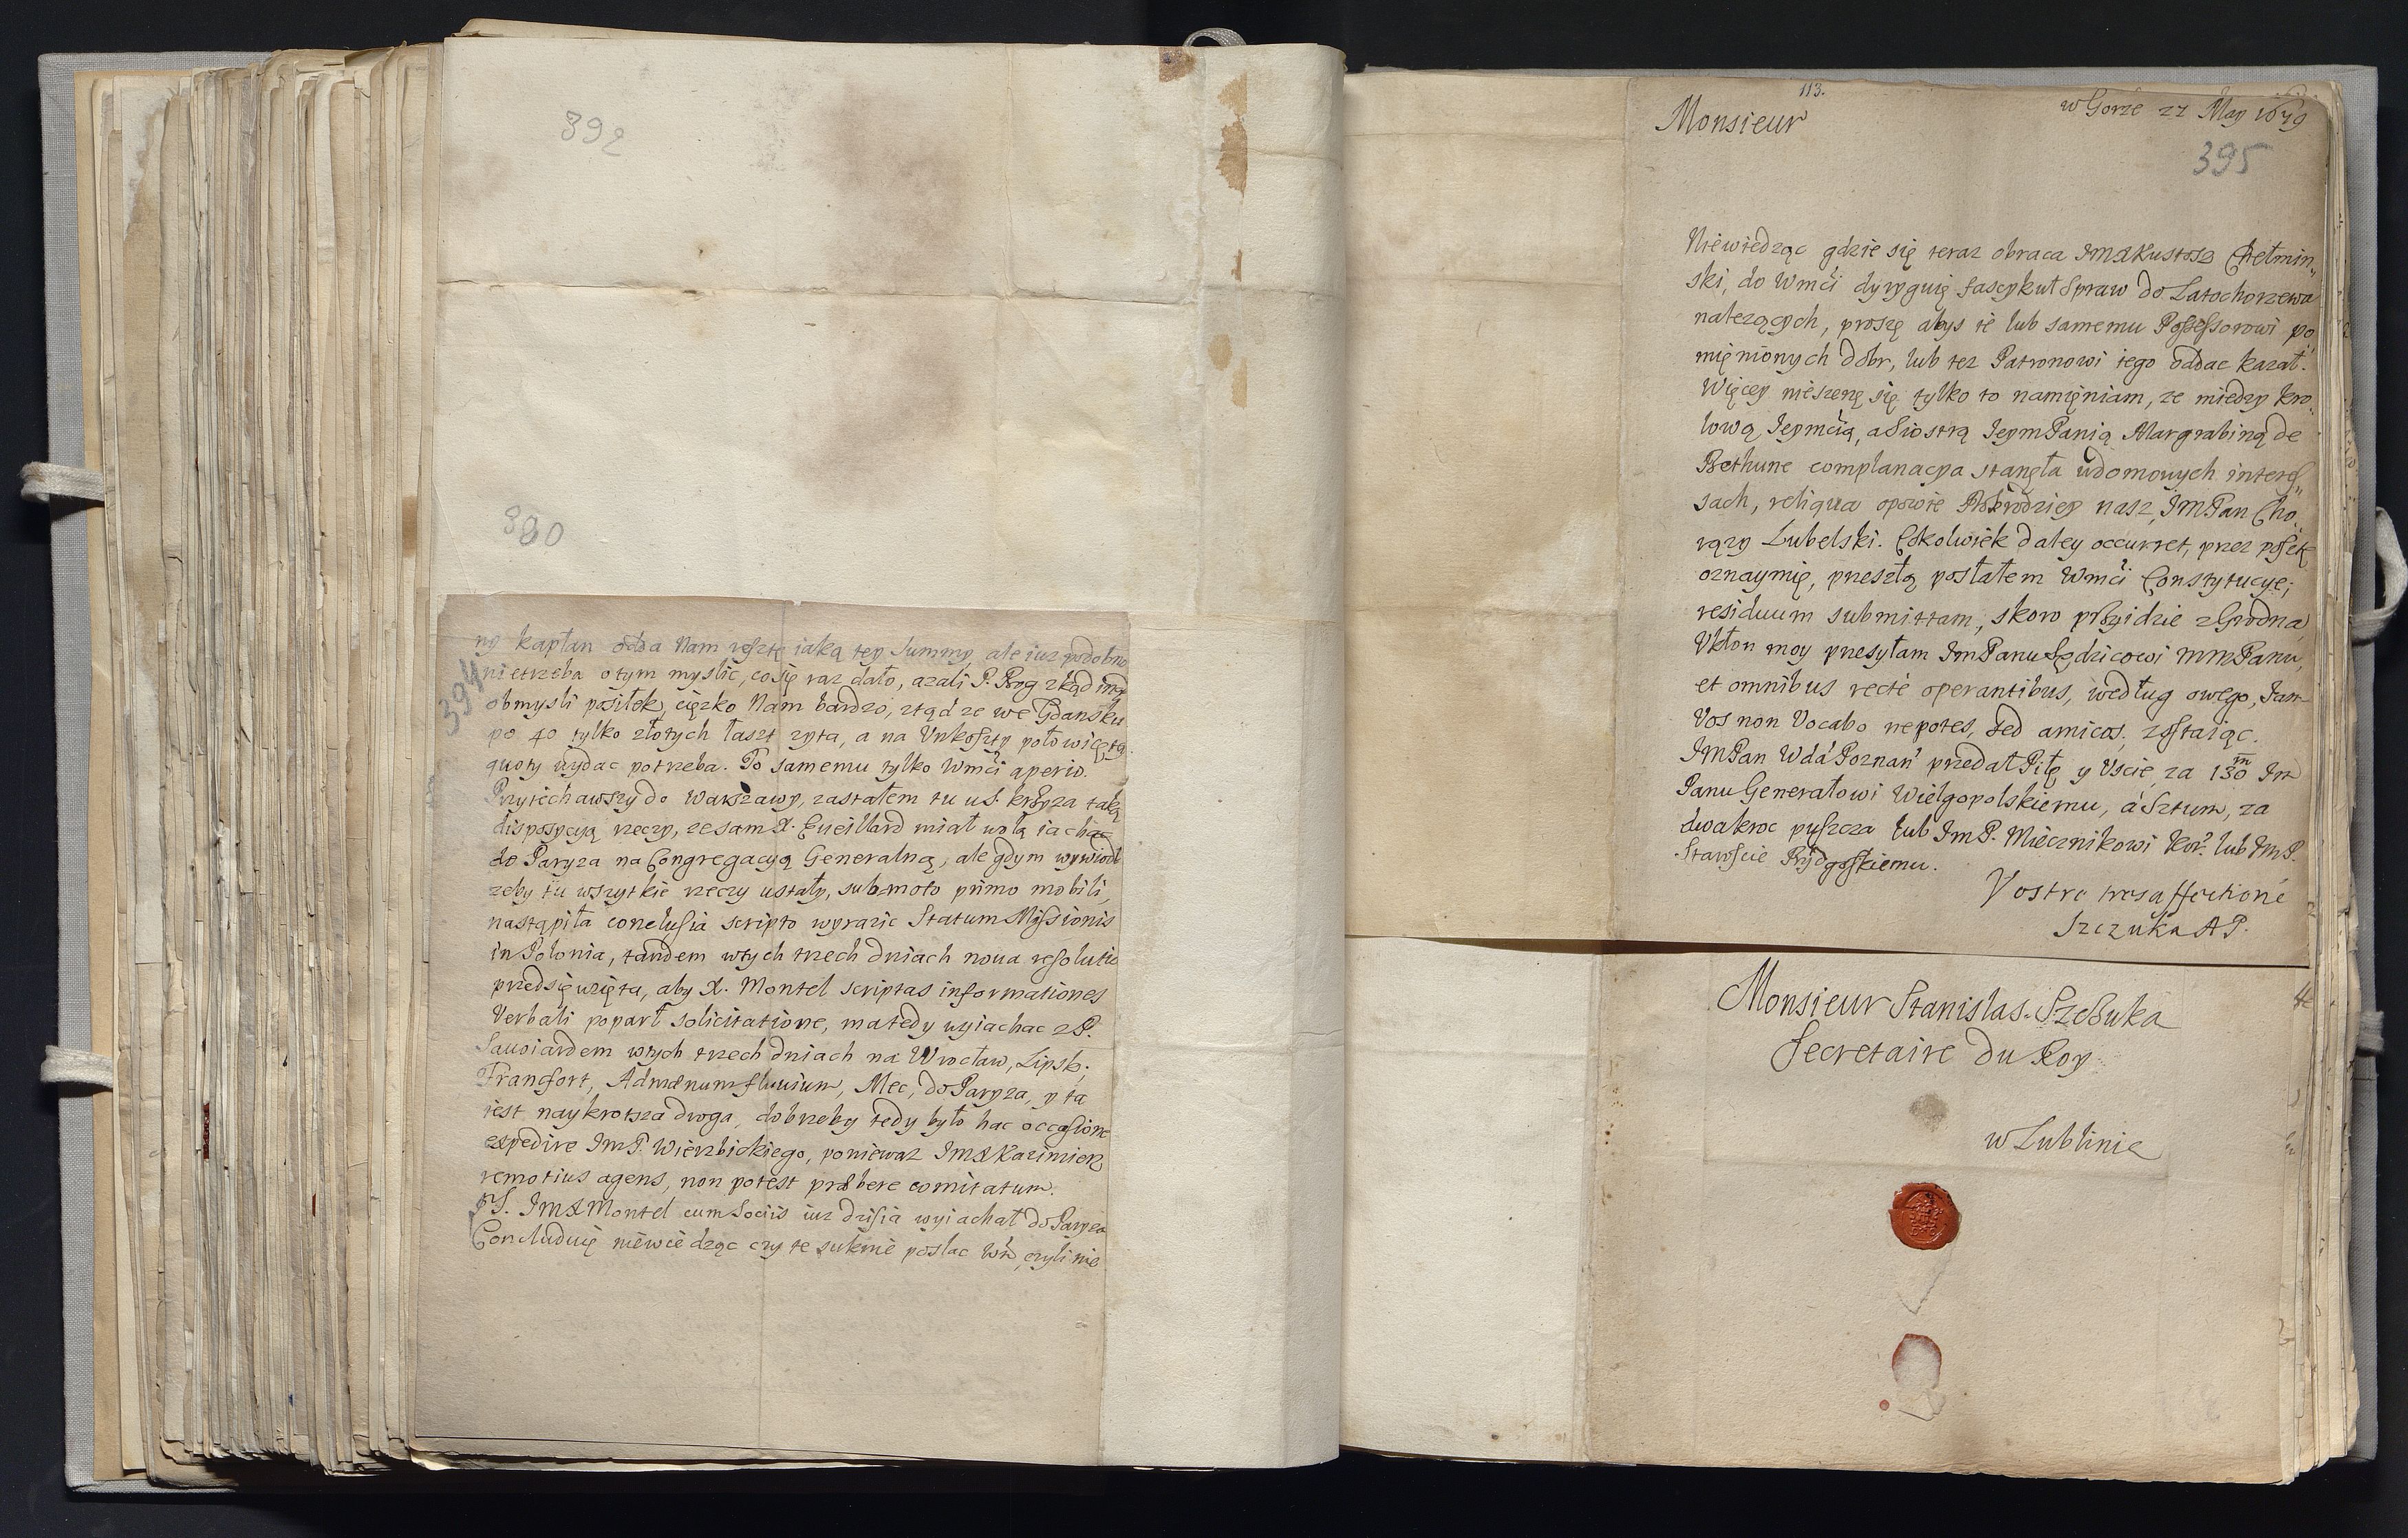 392
390
394
ny kapłan odda Nam resztę iaką tey Summy, ale iuz podobno
nietrzeba otym myslic, co się raz dało, azali P. Bog zkąd iną
obmysli posiłek, cięzko Nam bardzo, ztąd ze we Gdansku
po 40 tylko złotych łaszt zyta, a na Unkoszty połowicę tą
quoty wydac potrzeba. To samemu tylko Wmci aperio.
Przyiechawszy do Warszawy, zastałem tu u S. krzyza taką
dispozycyą rzeczy, ze sam X. Eueillard miał wolą iachac
do Paryza na Congregacyą Generalną, ale gdym wywiodł
zeby tu wszytkie rzeczy ustały, submoto primo mobili,
nastąpiła conclusia scripto wyrazic Statum Missionis
in Polonia, tandem wtych trzech dniach noua resolutio
przedsięwzięta, aby X. Montel scriptas informationes
Verbali poparł solicitatione, ma tedy wyiachac z P.
Sauoiardem wtych trzech dniach na Wrocław, Lipsk,
Francfort, Ad mænum fluuium, Mec, do Paryza, y ta
iest naykrotsza droga, dobrzeby tedy było hac occasione
expedire ImP. Wierzbickiego, poniewaz ImX Kazimierz
remotius agens, non potest præbere comitatum.
PS. ImX Montel cum Sociis iuz dzisia wyiachał do Paryza
Concluduię niewiedząc czy te suknie posłac Wm, czyli nie
113.
Monsieur
w Gorze 22 May 1679
395
Niewiedząc gdzie się teraz obraca ImX Kustosz Chełmin„
ski, do Wmci dyryguię fascykuł Spraw do Latochorzewa
nalezących, proszę abys ie lub samemu Possessorowi po
mięnionych dobr, lub tez Patronowi iego oddac kazał.
Więcey nieszerzę się tylko to namięniam, ze miedzy kro„
lową Ieymcią, a Siostrą Ieym Panią Margrabiną de
Bethune complanacya stanęła w domowych interes„
sach, reliqua opowie Dobrodziey nasz, ImPan Cho„
rązy Lubelski. Cokolwiek daley occurret, przez posztę
oznaymię, przeszłą posłałem Wmci Constytucye;
residuum submittam, skoro przyidzie z Grodna,
Ukłon moy przesyłam ImPanu Sędzicowi mmPanu,
et omnibus recté operantibus, według owego, Iam
Vos non Vocabo nepotes, sed amicos, zostaiąc.
ImPan Wda Poznan przedał Piłę, y Uscie, za 130 m Im
Panu Generałowi Wielgopolskiemu, á Sztum, za
dwakroc puszcza lub ImP. Miecznikowi Kor. lub ImP.
Staroscie Bydgoskiemu.
Vostre tresaffectioné
Szczuka AP.
Monsieur Stanislas Szczuka
Secretaire du Roy
w Lublinie